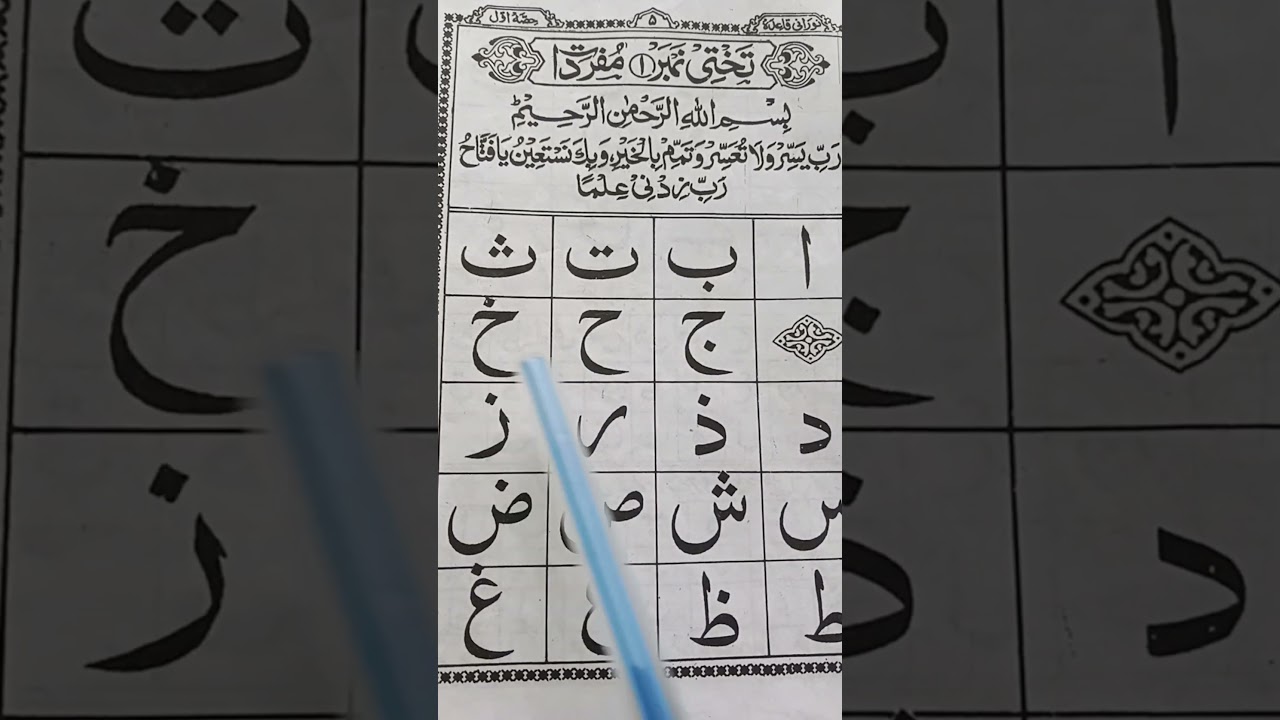 نورانی قاعدہ ۵ حصّہ اوّل
تَختِیْ نمبَر ۱ مُفردَات
بِسْمِ اللهِ الرَّحْمٰنِ الرَّحِيْمِ
رَبِّ يَسِّرْ وَلَا تُعَسِّرْ وَتَمِّمْ بِالْخَيْرِ وَبِكَ نَسْتَعِيْنُ يَا فَتَّاحُ
رَبِّ زِدْنِیْ عِلْمًا
ا ب ت ث
ج ح خ
د ذ ر ز
س ش ص ض
ط ظ ع غ